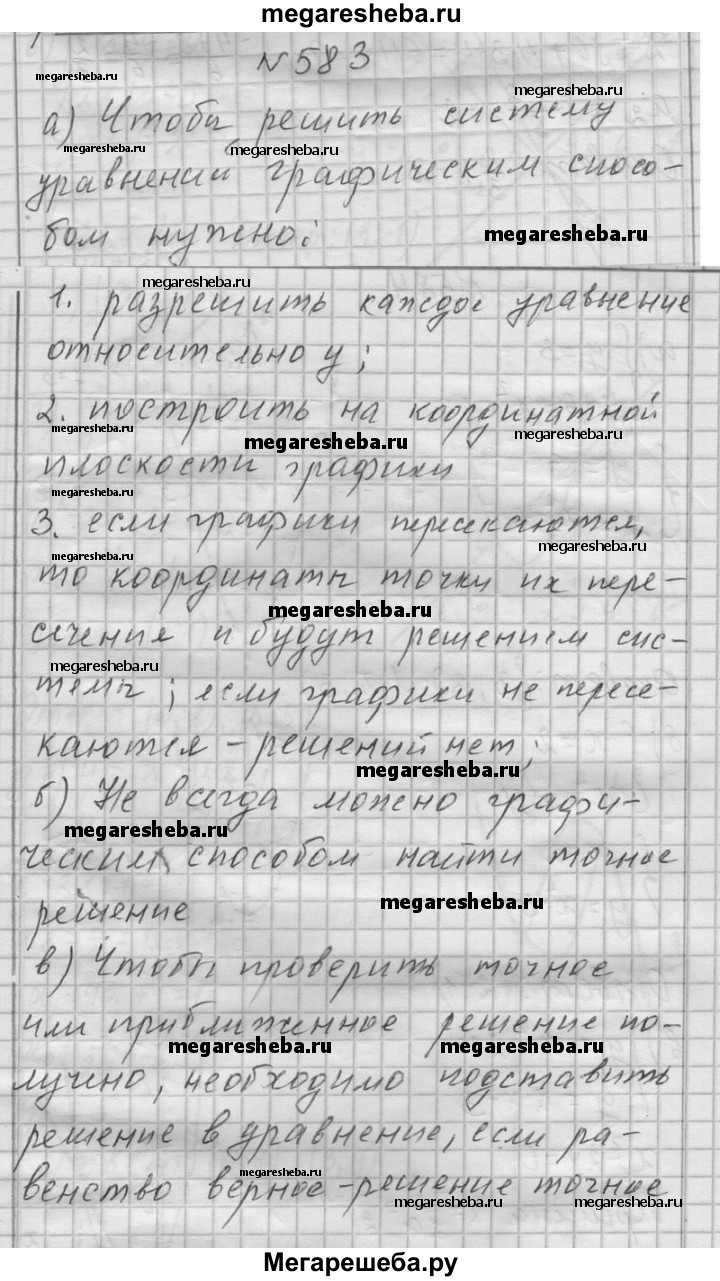 megaresheba.ru
№583
megaresheba.ru
megaresheba.ru
а) Чтобы решить систему
megaresheba.ru
megaresheba.ru
уравнений графическим спосо-
бом нужно:
megaresheba.ru
megaresheba.ru
1. разрешить каждое уравнение
относительно y;
2. построить на координатной
megaresheba.ru
megaresheba.ru
megaresheba.ru
плоскости графики
megaresheba.ru
3. если графики пересекаются,
megaresheba.ru
megaresheba.ru
то координаты точки их пере-
megaresheba.ru
сечения и будут решением сис-
megaresheba.ru
темы; если графики не пересе-
каются – решений нет;
megaresheba.ru
б) Не всегда можно графи-
megaresheba.ru
ческим способом найти точное
решение
megaresheba.ru
в) Чтобы проверить точное
или приближенное решение по-
megaresheba.ru
megaresheba.ru
лучено, необходимо подставить
решение в уравнение, если ра-
megaresheba.ru
венство верное – решение точное
megaresheba.ru
megaresheba.ru
Мегарешеба.ру